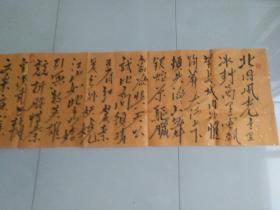 北国风光千里
冰封万里雪飘
望长城内外惟
余莽莽大河上下
顿失滔滔山舞
银蛇原驰蜡
象欲与天公
试比高须晴
日看红装素
裹分外妖娆
江山如此多娇
引无数英雄
竞折腰惜秦